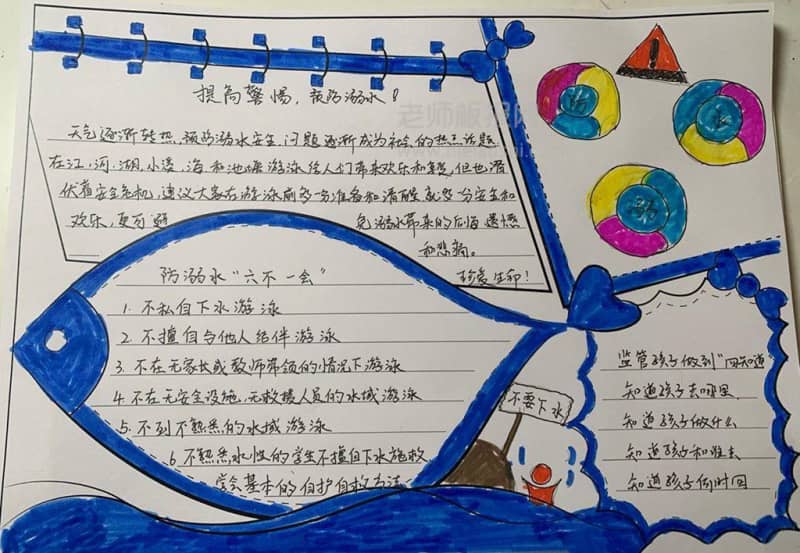 提高警惕，预防溺水！
天气逐渐转热，预防溺水安全问题逐渐成为社会的热点话题
在江，河，湖，小渠，海和池塘游泳给人们带来欢乐和 但也潜
伏着安全危机，建议大家在游泳前多一分准备和清醒 多一分安全和
欢乐，更可避 免溺水带来的后悔遗憾
和悲痛。
珍爱生命！
防溺水“六不一会”
1. 不私自下水游泳
2. 不擅自与他人结伴游泳
3. 不在无家长或教师带领的情况下游泳
4. 不在无安全设施、无救援人员的水域游泳
5. 不到不熟悉的水域游泳
6. 不熟悉水性的学生不擅自下水施救
学会基本的自护自救方法
防
水
溺
不要下水
监管孩子做到“四知道”
知道孩子去哪里
知道孩子做什么
知道孩子和谁去
知道孩子何时回
老师板报网